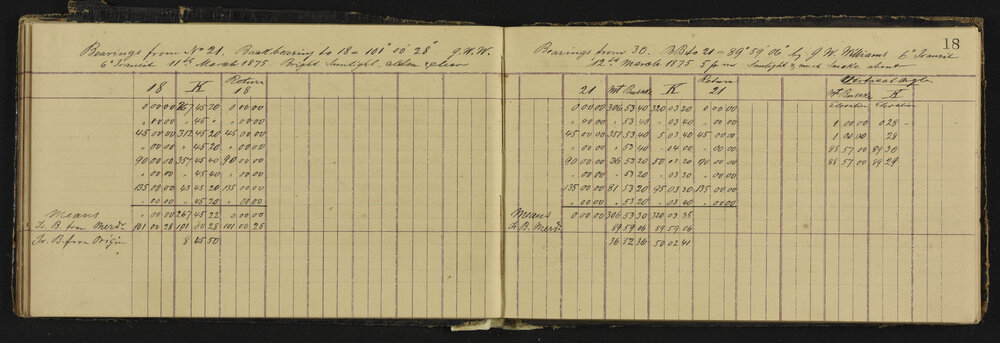 Bearings from No 21. Backbearing to 18 = 101° 00' 28" G.W.W.
6" Transit 11th March 1875. Bright Sunlight, clear
18 K Return 18
0 00 00 267 45 20 0 00 00
" 00 00 " 45 " " 00 00
45 00 00 312 45 20 45 00 00
" 00 00 " 45 20 " 00 00
90 00 00 357 45 40 90 00 00
" 00 00 " 45 40 " 10 00
135 00 00 43 45 20 135 00 00
" 00 00 " 45 20 " 00 00
Means " 00 00 267 45 22 0 00 00
Tr. B. from Merdn 101 00 28 101 00 28 101 00 28
Tr. B. from Origin 8 45 50
18
Bearings from 30. BB to 21 = 89° 59' 06" by G. W. Williams 6" Transit
12th March 1875 5 pm Sunlight & much Smoke about
21 Mt K Return 21
0 00 00 306 53 40 320 03 20 0 00 00
" 00 00 " 53 40 " 03 40 " 00 00
45 00 00 351 53 40 5 03 40 45 00 00
" 00 00 " 53 40 " 04 00 " 00 00
90 00 00 36 53 20 50 03 20 90 00 00
" 00 00 " 53 20 " 03 30 " 00 00
135 00 00 81 53 20 95 03 30 135 00 00
" 00 00 " 53 20 " 03 40 " 00 00
Means 0 00 00 306 53 30 320 03 35
Tr. B. Merdn 89 59 06 89 59 06
36 52 36 50 02 41
Vertical Angles
Mt K
Elevation Elevation
1 00 00 0 28 -
1 00 00 28
88 57 00 89 30
88 57 00 89 29